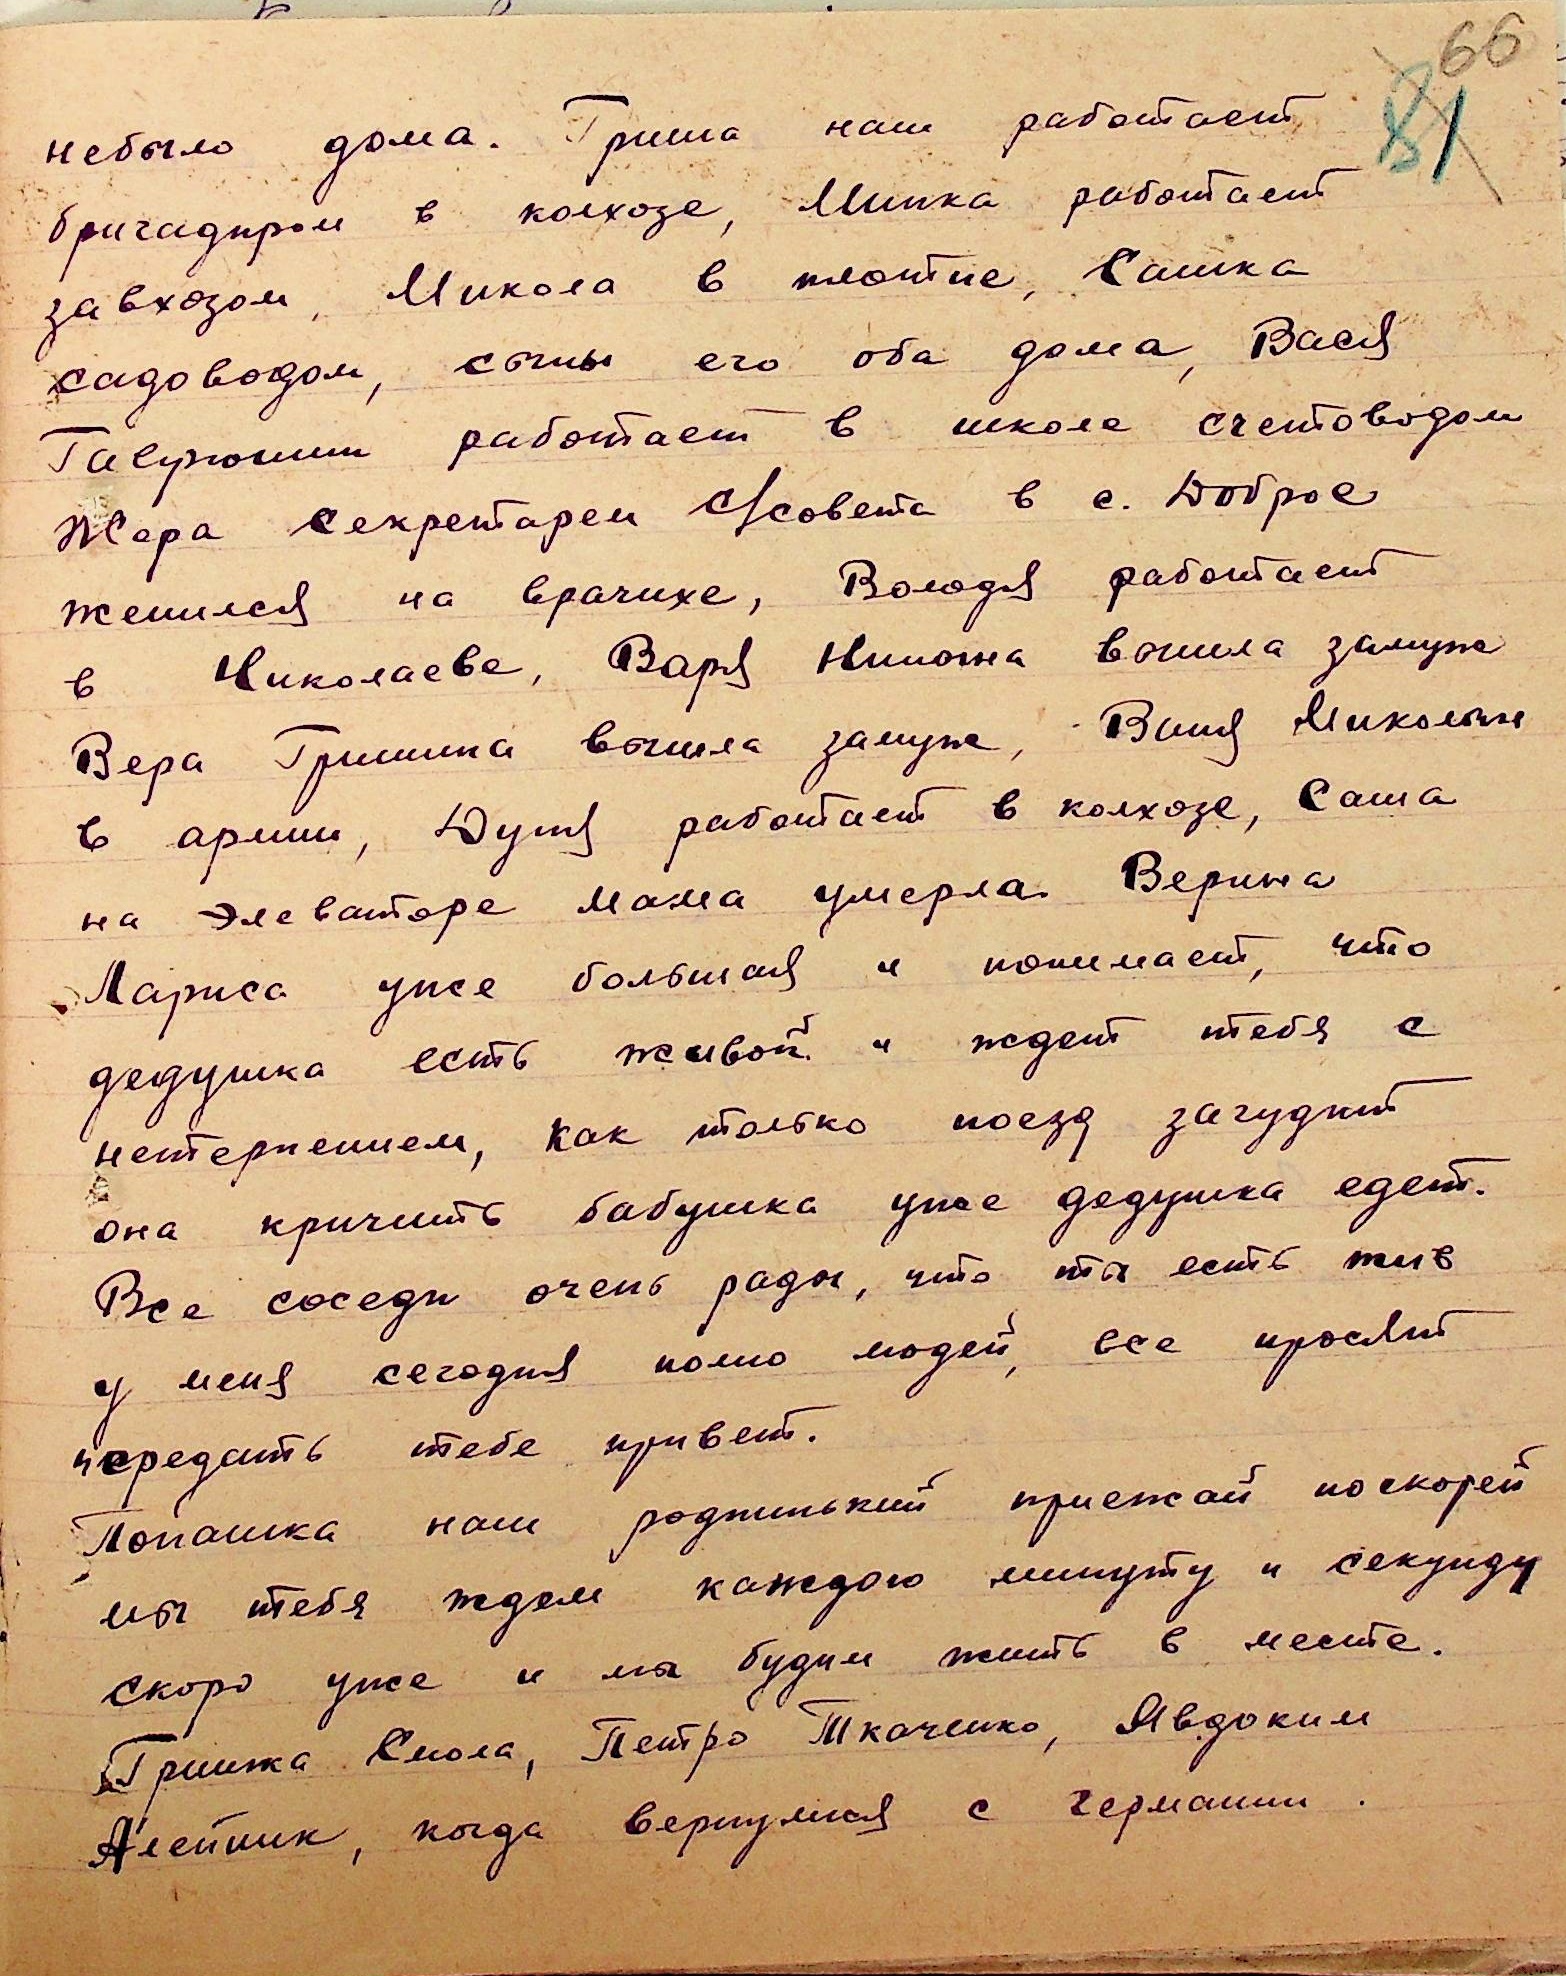 66
81
небыло дома. Гриша наш работает
бригадиром в колхозе, Минка работает
завхозом, Микола в плотне, Сашка
садоводом, сыны его оба дома, Вася
работает в школе счетоводом
Жора секретарем с/совета в с. Доброе
женился на врачихе, Володя работает
в Николаеве, Варя вышла замуж
Вера Гришина вышла замуж, Ваня Миколын
в армии, Дуня работает в колхозе, Саша
на элеваторе мама умерла. Верина
Лариса уже большая и понимает, что
дедушка есть живой и ждет тебя с
нетерпением, как только поезд загудит
она кричить бабушка уже дедушка едет.
Все соседи очень рады, что ты есть жив
у меня сегодня полно людей, все просят
передать тебе привет.
Попашка наш родненький приежай поскорей
мы тебя ждем каждою минуту и секунду
скоро уже и мы будим жить в месте.
Гришка Смола, Петро Ткаченко, Явдоким
Алейник, когда вернулися с германии.